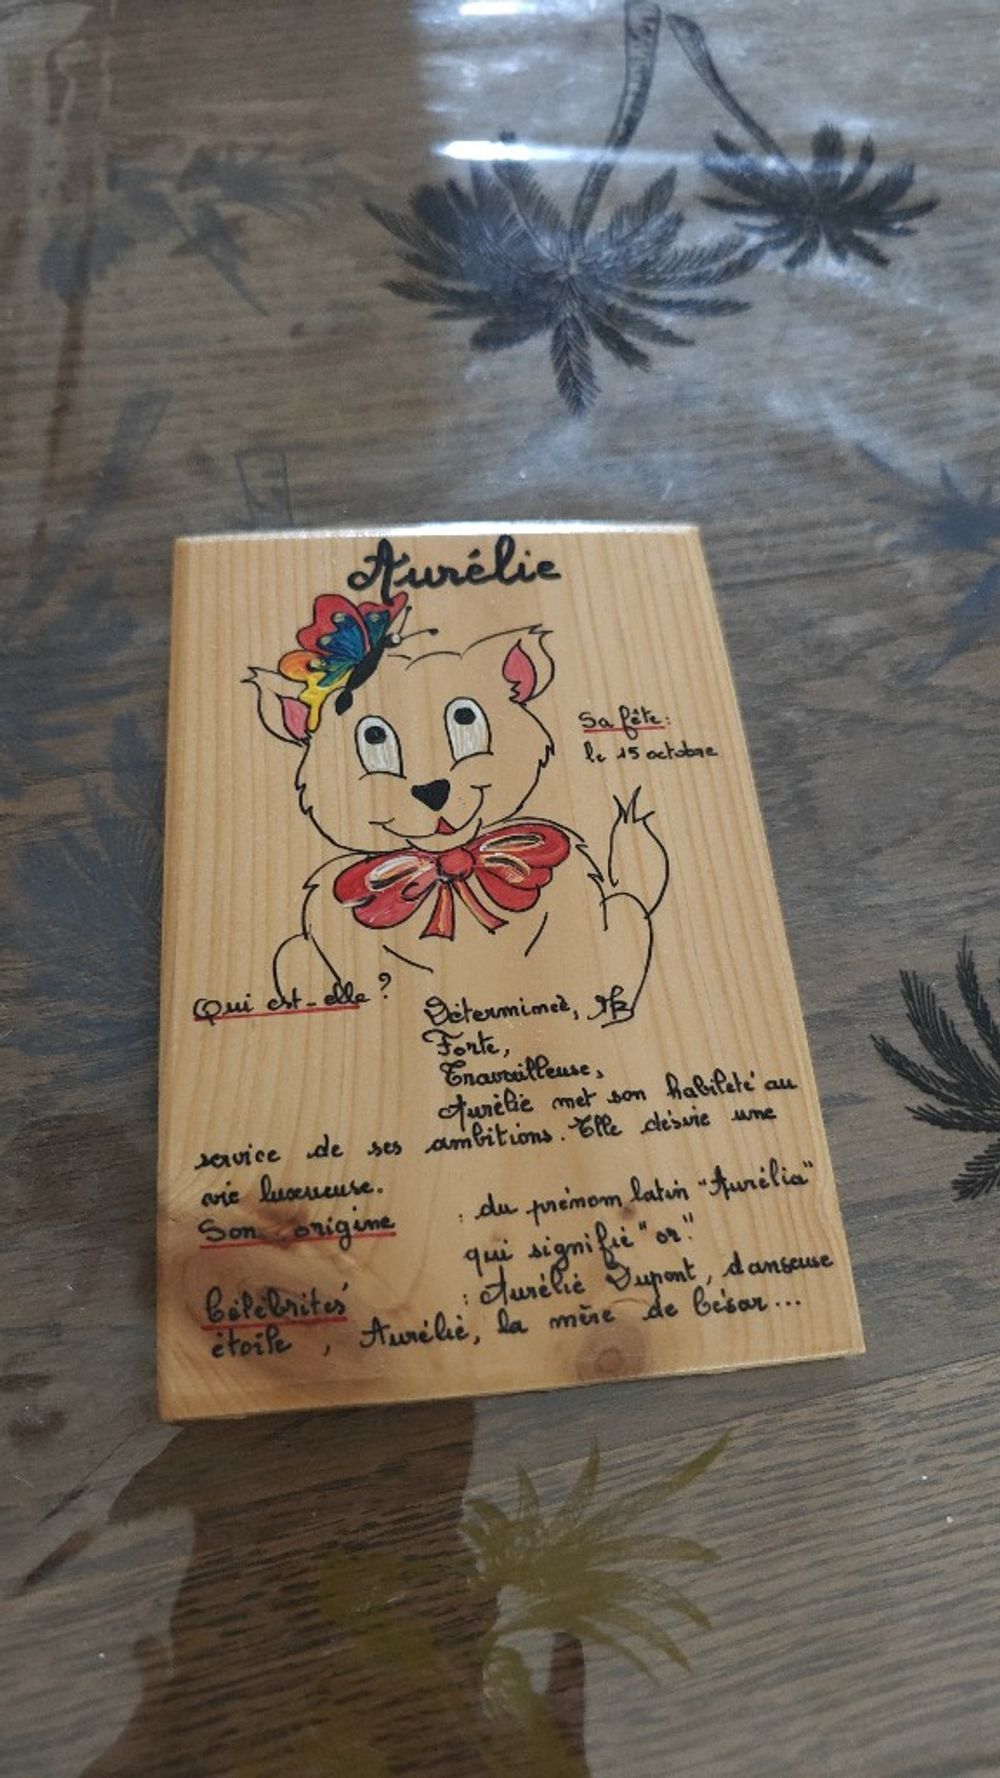 Aurélie
Sa fête:
le 15 octobre
Qui est-elle ?
Déterminée,
Forte,
Travailleuse,
Aurélie met son habileté au
service de ses ambitions. Elle désire une
vie luxueuse.
Son origine : du prénom latin "Aurélia"
qui signifie "or".
Célébrités : Aurélie Dupont, danseuse
étoile, Aurélie, la mère de César...